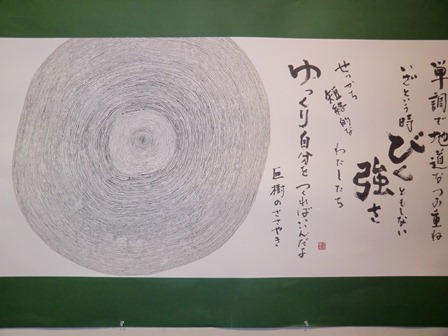 単調で地道なつみ重ね
いざという時
びくともしない
強さ
せっかち
短絡的な
わたしたち
ゆっくり自分を
つくればいんだよ
巨樹のささやき